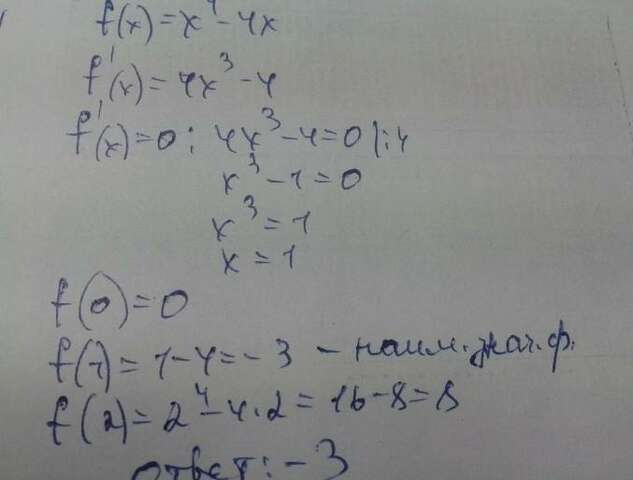 f(x)=x⁴-4x
f'(x)=4x³-4
f'(x)=0: 4x³-4=0 |:4
x³-1=0
x³=1
x=1
f(0)=0
f(1)=1-4=-3 - наим. знач. ф.
f(2)=2⁴-4·2=16-8=8
ответ: -3